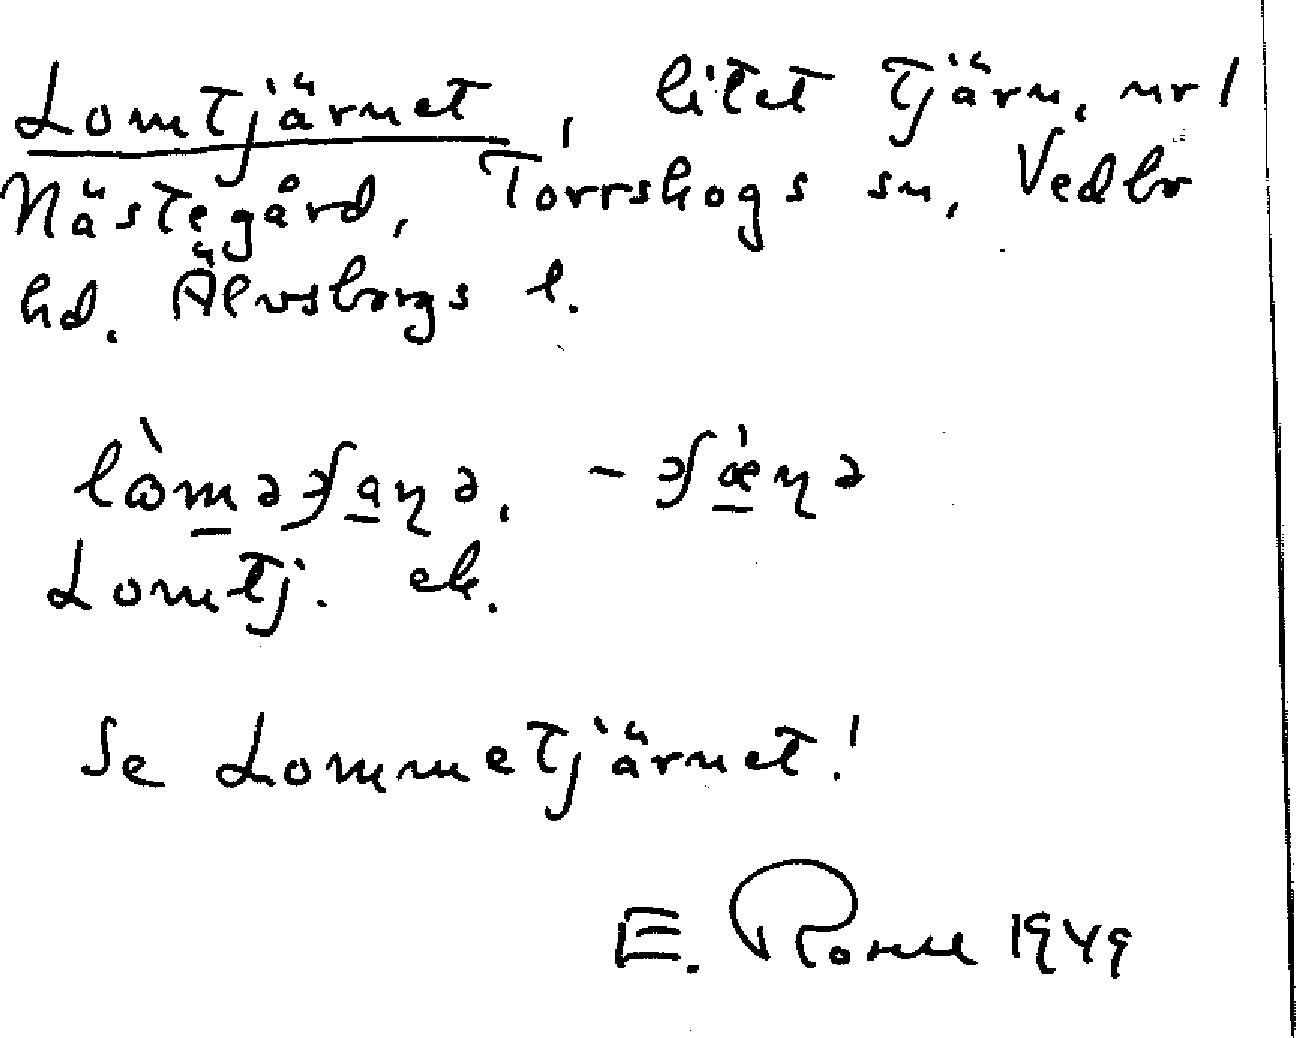 Lomtjärnet, litet tjärn, nr 1
Nästegård, Torrskogs sn, Vedbo
hd. Älvsborgs l.
Lomtj. ek.
Se Lommetjärnet!
E. 1949